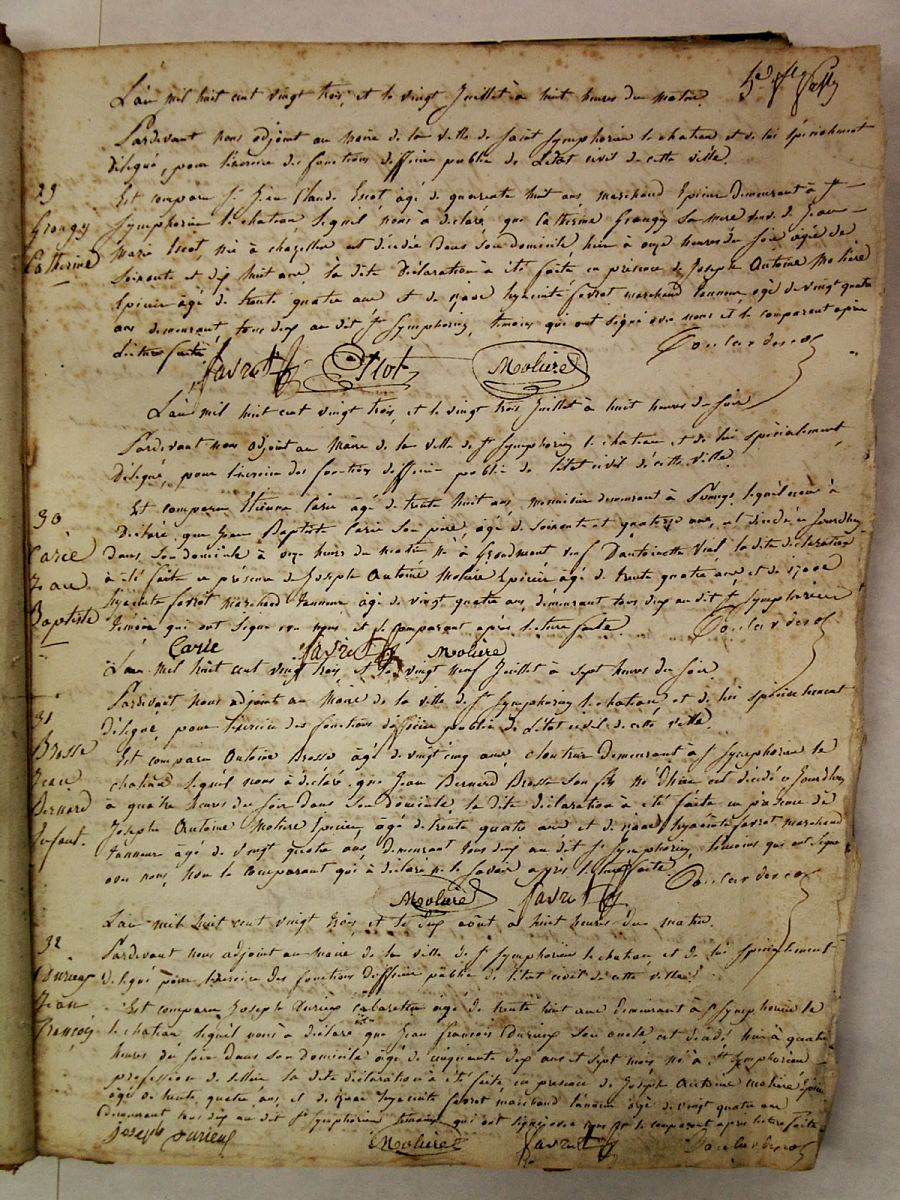 L'an mil huit cent vingt trois, et le vingt Juillet à huit heures du matin.
Pardevant nous adjoint au Maire de la ville de Saint Symphorien le chateau et de lui spécialement
délégué, pour l'exercice des fonctions d'officier public de L'état civil de cette ville.
29
Grongy
Catherine
Est comparu Sr. Jean Claude Escot, âgé de quarante huit ans, marchand Epicier demeurant à St
Symphorien le chateau, lequel nous a déclaré, que Catherine Grongy Sa mere veuve de Jean
Marie Escot, née à chazelles est décédée dans son domicile hier à onze heures du Soir, âgée de
Soixante et dix huit ans, la dite déclaration à été faite en présence de Joseph Antoine Molière
Epicier âgé de trente quatre ans et de hyacinte favrot marchand tanneur, âgé de vingt quatre
ans demeurant tous deux au dit St Symphorien, temoins qui ont signé avec nous et le comparant après
lecture faite
Favrot Molière
L'an mil huit cent vingt trois, et le vingt trois Juillet à huit heures du Soir
Pardevant nous adjoint au Maire de la ville de St Symphorien le chateau, et de lui spécialement
délégué, pour l'exercice des fonctions d'officier public de l'état civil de cette ville.
30
Carie
Jean
Baptiste
Est comparu Etienne Carie âgé de trente huit ans, demeurant à lequel nous à
déclaré que Jean Baptiste Carie Son père, âgé de Soixante et quatorze ans, est décédé ce Jourdhuy
dans Son domicile à onze heures du matin né à Grandmont veuf D'antoinette Vial la dite déclaration
à été faite en présence de Joseph Antoine Molière Epicier âgé de trente quatre ans et de
hyacinte favrot marchand tanneur âgé de vingt quatre ans, demeurant tous deux au dit St Symphorien
temoins qui ont signé avec nous et le comparant après lecture faite.
Carie Favrot Molière
L'an mil huit cent vingt trois, et le vingt neuf Juillet à Sept heures du Soir
Pardevant nous adjoint au Maire de la ville de St Symphorien le chateau, et de lui spécialement
délégué, pour l'exercice des fonctions d'officier public de L'état civil de cette ville.
31
Brosse
Jean
Bernard
Enfant.
Est comparu Antoine Brosse âgé de vingt cinq ans, cloutier demeurant à St Symphorien le
chateau lequel nous à déclaré que Jean Bernard Brosse Son fils né D'hier est décédé ce Jourdhuy
à quatre heures du Soir dans Son domicile, la dite déclaration à été faite en présence de
Joseph Antoine Molière Epicier, âgé de trente quatre ans et de hyacinte favrot marchand
tanneur âgé de vingt quatre ans, demeurant tous deux au dit St Symphorien, temoins qui ont signé
avec nous, non le comparant qui à déclaré ne le Savoir après lecture faite
Molière Favrot
L'an mil huit cent vingt trois, et le dix août à huit heures du matin.
Pardevant nous adjoint au Maire de la ville de St Symphorien le chateau, et de lui spécialement
délégué pour l'exercice des fonctions d'officier public de l'état civil de cette ville.
32
Durieux
Jean
François
Est comparu Joseph Durieux cabaretier âgé de trente huit ans demeurant à St Symphorien le
le chateau lequel nous à déclaré que Jean François Durieux Son oncle, est décédé hier à quatre
heures du Soir dans Son domicile âgé de cinquante dix ans et Sept mois, né à St Symphorien
profession de Sellier la dite déclaration à été faite en presence de Joseph Antoine molière Epicier
âgé de trente, quatre ans, et de hyacinte favrot marchand tanneur âgé de vingt quatre ans
demeurant tous deux au dit St Symphorien temoins qui ont signé avec nous et le comparant après lecture faite
joseph durieux Molière Favrot